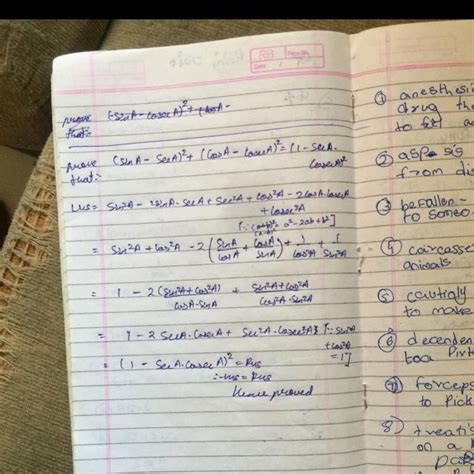 RB
Date
prove that:- (SinA - CosecA)² + (CosA -
prove that:- (SinA - SecA)² + (CosA - CosecA)² = (1 - SecA.
CosecA)²
LHS = Sin²A - 2SinA.SecA + Sec²A + Cos²A - 2CosA.CosecA
+ Cosec²A
= Sin²A + Cos²A - 2(SinA/CosA + CosA/SinA) + 1/Cos²A + 1/Sin²A
= 1 - 2(Sin²A + Cos²A)/CosA.SinA + Sin²A + Cos²A/Cos²A.Sin²A
= 1 - 2SecA.CosecA + Sec²A.Cosec²A [∵ Sin²A
+ Cos²A
= 1]
= (1 - SecA.CosecA)² = RHS
∴ LHS = RHS
Hence proved
① anesthesi
drug the
to
②
from dis
③ befallen -
to someo
④ carcasse
animals
⑤
to make
⑥
⑦ forceps
to Pick
8) treatis
on a